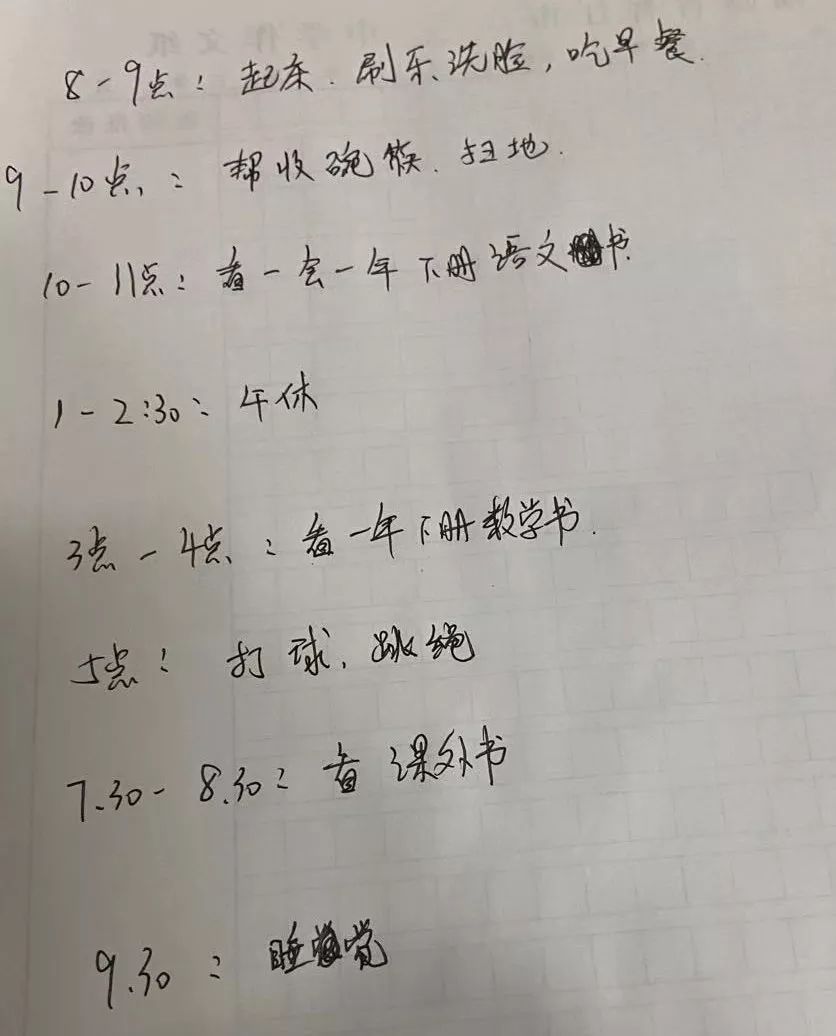 8-9点：起床.刷牙、洗脸，吃早餐.
9-10点：帮收碗筷.扫地.
10-11点：看一会一年下册语文书.
1-2:30：午休
3点-4点：看一年下册数学书.
5点：打球.跳绳
7.30-8.30：看课外书
9.30：睡觉